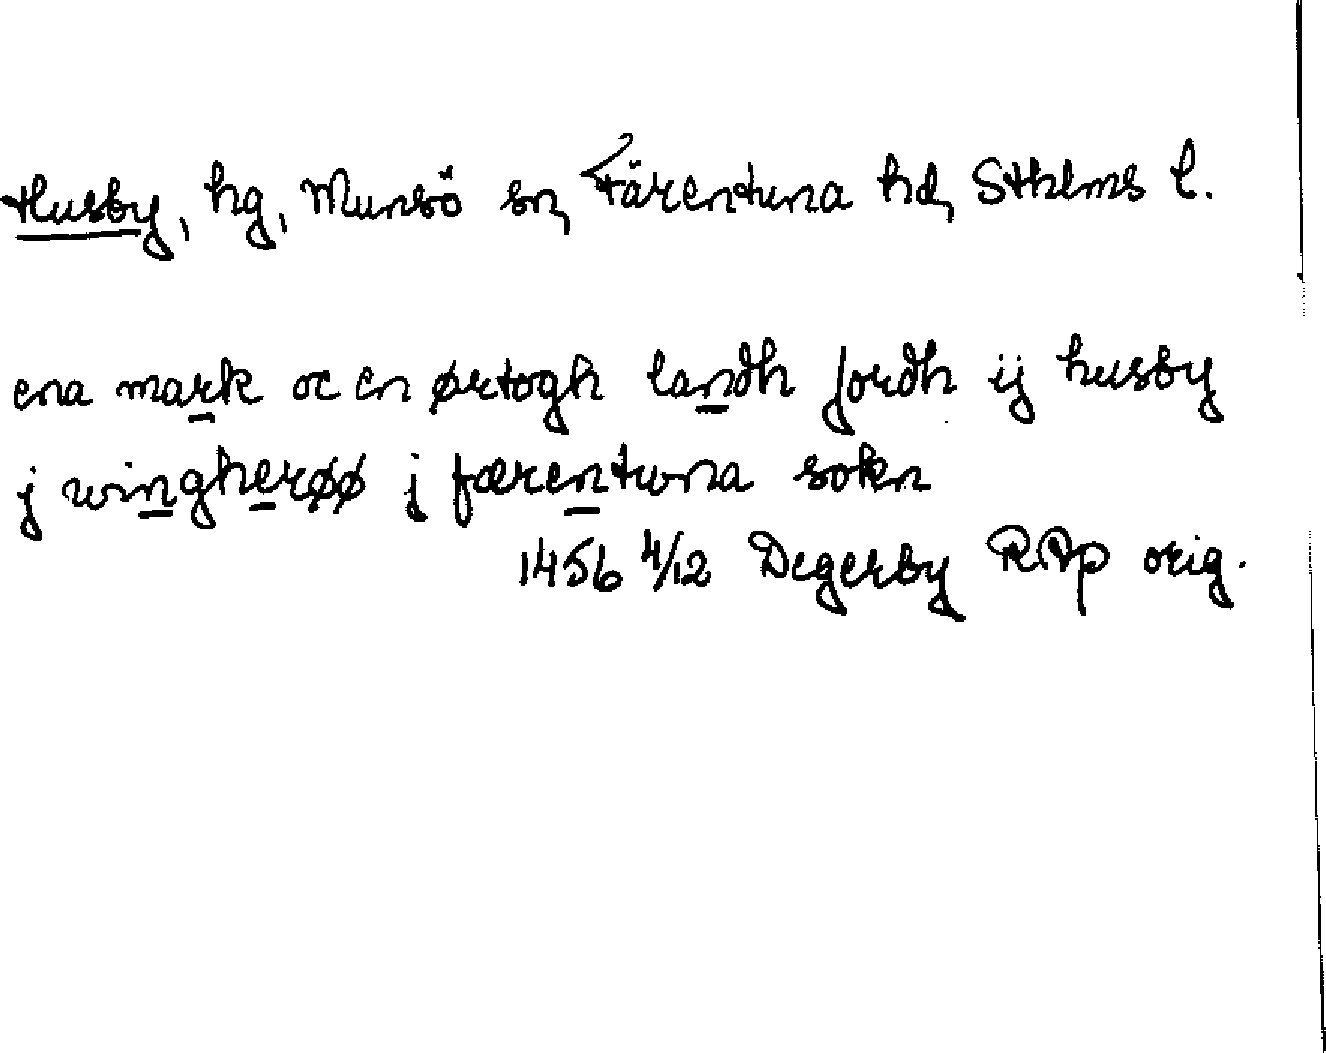 Husby, hg, Munsö sn, Färentuna hd, Sthlms l.
ena mark oc en ørtogh landh jordh ij husby
j wingherøø j færentwna sokn
1456 4/12 Degerby RAp orig.